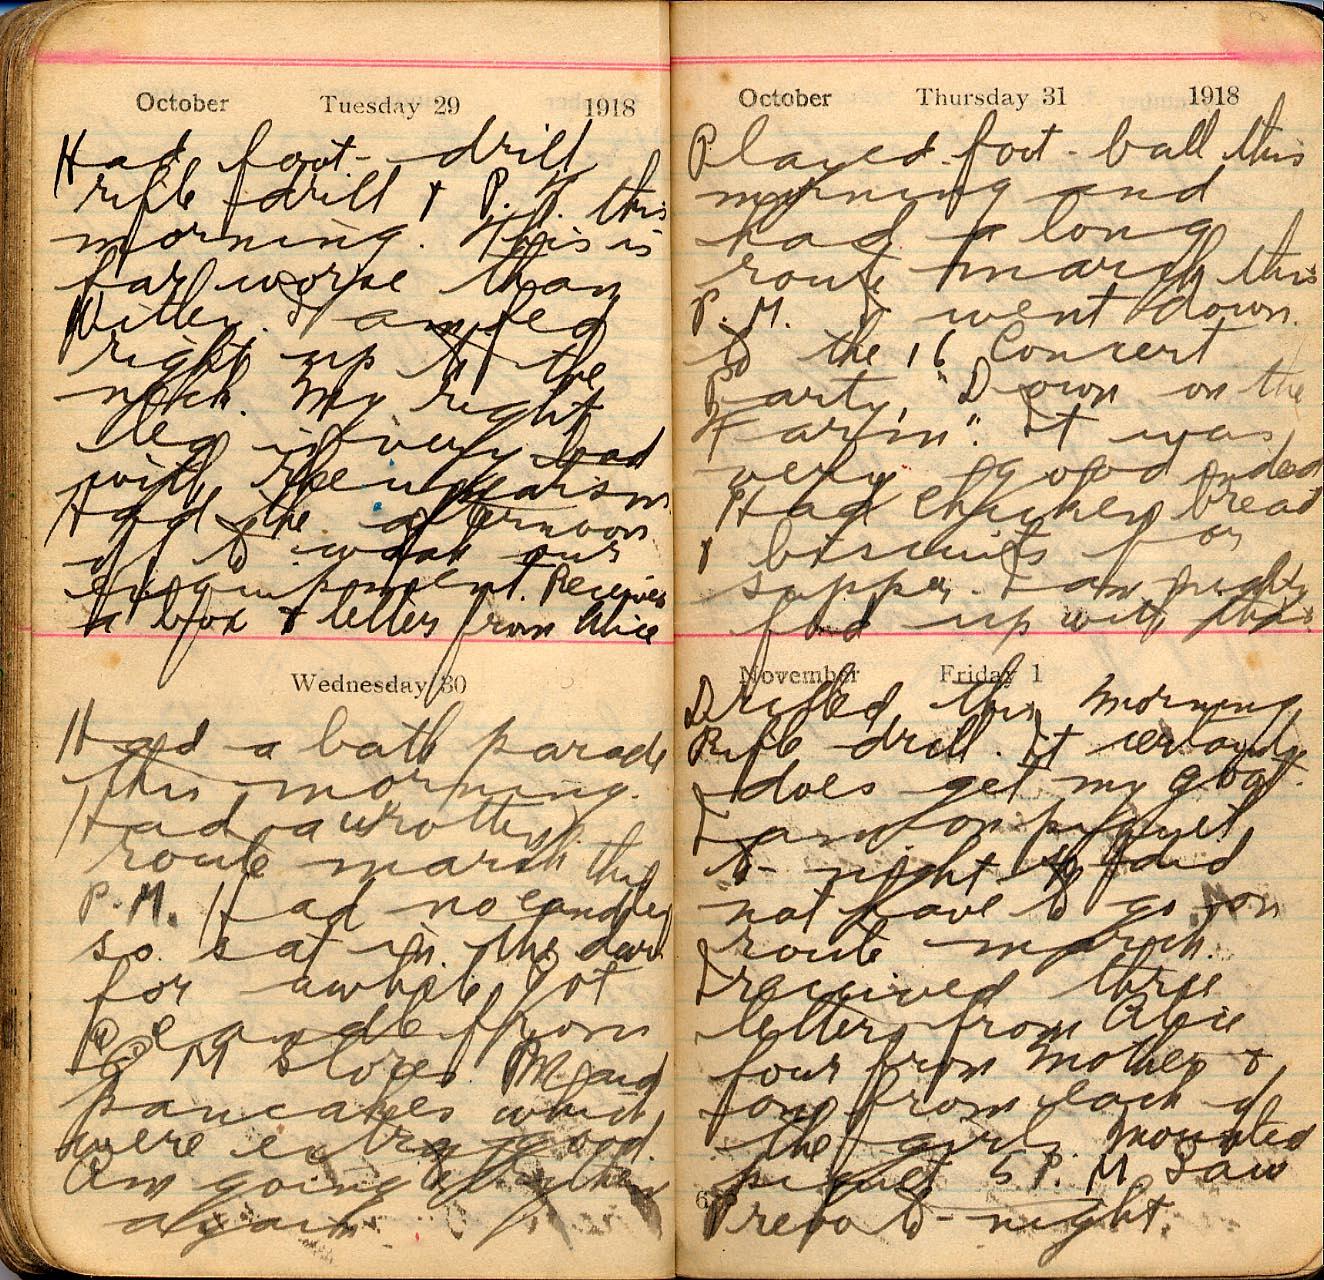 October Tuesday 29 1918
Had foot-drill
rifle drill & P. T. this
morning. This is
far worse than
Witley. I am fed
right up to the
neck. My right
leg is very bad
with rheumatism
Had the afternoon
off to wash our
equipment. Receives
a box & letter from Alice
Wednesday 30
Had a bath parade
this morning.
Had a rotten
route march this
P.M. Had no candles
so sat in the dark
for awhile. Got
a candle from
Q M Stores. Made
pancakes which
were extra good.
Am going to try them
again.
October Thursday 31 1918
Played foot-ball this
morning and
had a long
route march this
P. M. I went down
to the 16 Concert
Party, "Down on the
Farm". It was
very good indeed
Had chicken, bread
& biscuits for
supper. I am mighty
fed up with this.
November Friday 1
Drilled this morning
Rifle drill. It certainly
does get my goat.
I am on piquet
to-night so did
not have to go on
route march.
I received three
letters from Alice
four from Mother &
one from each of
the girls. Mounted
piquet 5 P. M. Saw
to-night.